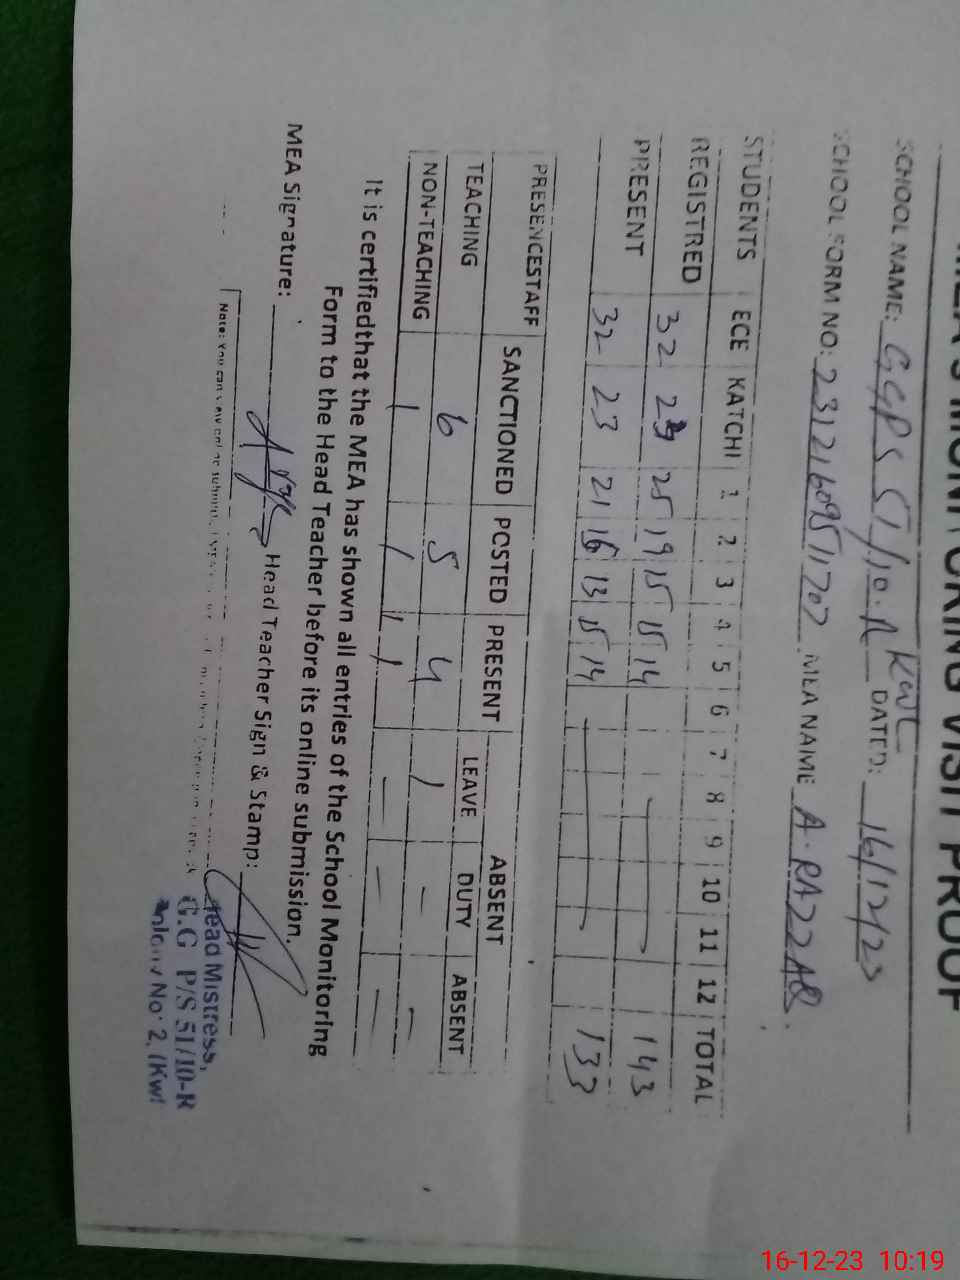 MEA'S MONITORING VISIT PROOF
SCHOOL NAME: GGPS 51/10-R KWL DATED: 16/12/23
SCHOOL FORM NO: 23121609511707 MEA NAME A. RAZZAQ.
STUDENTS ECE KATCHI 1 2 3 4 5 6 7 8 9 10 11 12 TOTAL
REGISTRED 32 23 25 19 15 15 14 143
PRESENT 32 23 21 16 13 15 14 133
PRESENCESTAFF SANCTIONED POSTED PRESENT ABSENT
LEAVE DUTY ABSENT
TEACHING 6 5 4 1 - -
NON-TEACHING 1 1 1 - - -
It is certifiedthat the MEA has shown all entries of the School Monitoring
Form to the Head Teacher before its online submission.
MEA Signature: Head Teacher Sign & Stamp:
Head Mistress,
G.G P/S 51/10-R
No: 2, (Kwl
Note: You can
16-12-23 10:19